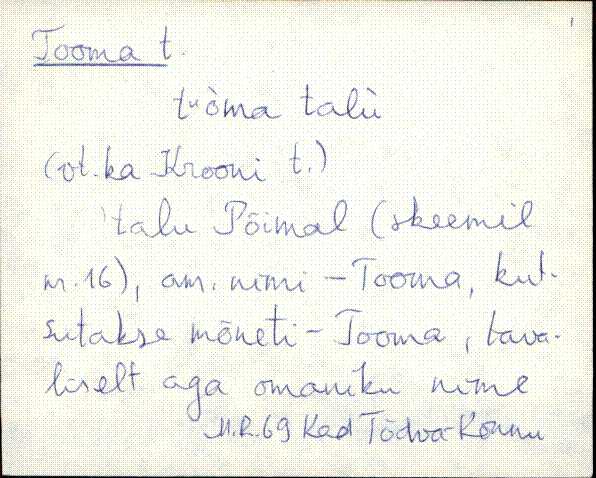 Tooma t.
tᵘòma talù
(vt. ka Krooni t.)
talu Põimal (skeemil
nr. 16), am. nimi - Tooma, kut-
sutakse mõneti - Tooma, tava-
liselt aga omaniku nime
M.R. 69 Kad Tõdva-Konnu